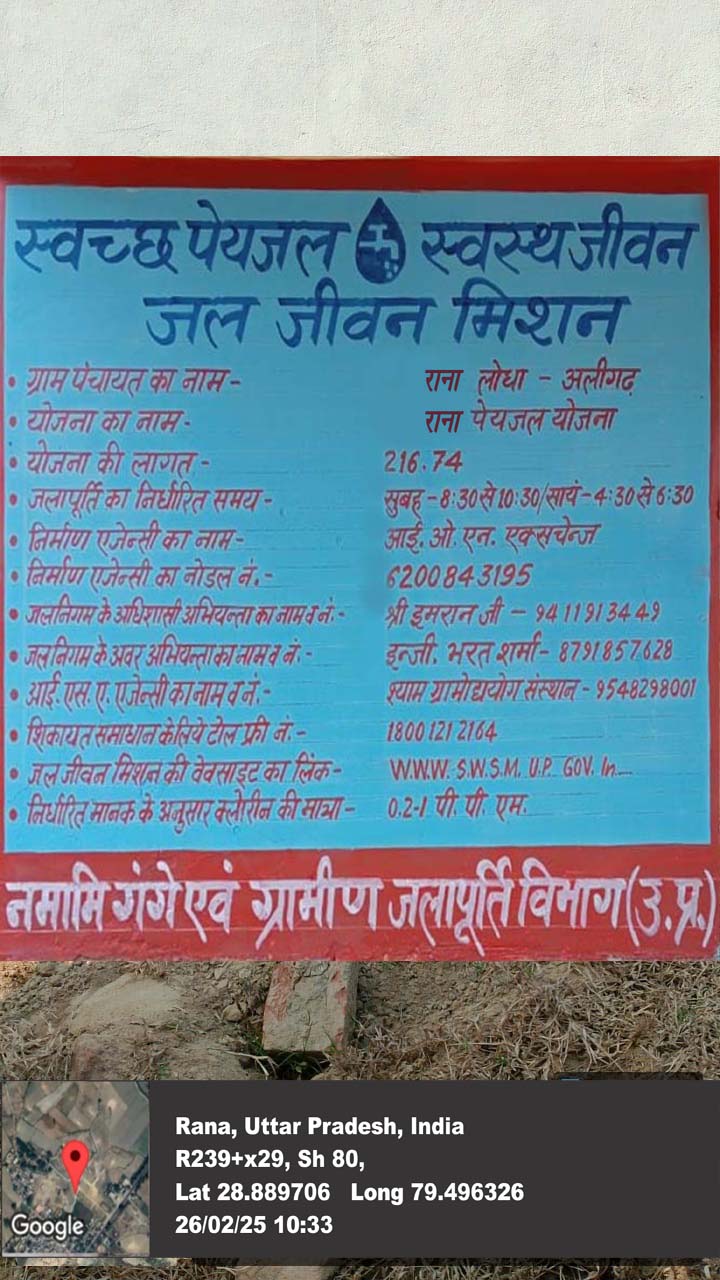 स्वच्छ पेयजल स्वस्थ जीवन
जल जीवन मिशन
• ग्राम पंचायत का नाम - राना लोधा - अलीगढ़
• योजना का नाम - राना पेयजल योजना
• योजना की लागत - 216.74
• जलापूर्ति का निर्धारित समय - सुबह - 8:30 से 10:30/सायं - 4:30 से 6:30
• निर्माण एजेन्सी का नाम - आई. ओ. एन. एक्सचेन्ज
• निर्माण एजेन्सी का नोडल नं. - 6200843195
• जलनिगम के अधिशासी अभियन्ता का नाम व नं. - श्री इमरान जी - 9411913449
• जलनिगम के अवर अभियन्ता का नाम व नं. - इन्जी. भरत शर्मा - 8791857628
• आई. एस. ए. एजेन्सी का नाम व नं. - श्याम ग्रामोद्योग संस्थान - 9548298001
• शिकायत समाधान के लिये टोल फ्री नं. - 1800 121 2164
• जल जीवन मिशन की वेवसाइट का लिंक - W.W.W. S.W.S.M. U.P. GOV. In
• निर्धारित मानक के अनुसार क्लोरीन की मात्रा - 0.2-1 पी. पी. एम.
नमामि गंगे एवं ग्रामीण जलापूर्ति विभाग (उ.प्र.)
Rana, Uttar Pradesh, India
R239+x29, Sh 80,
Lat 28.889706 Long 79.496326
26/02/25 10:33
Google